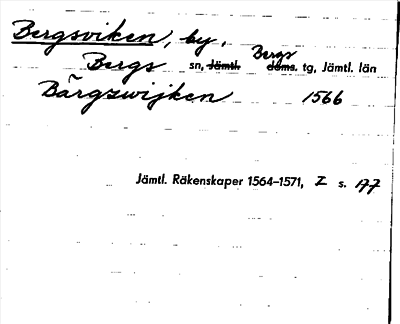 Bergsviken, by,
Bergs sn, Jämtl. Bergs doms. tg, Jämtl. län
Bärgzwijken 1566
Jämtl. Räkenskaper 1564–1571, I s. 177